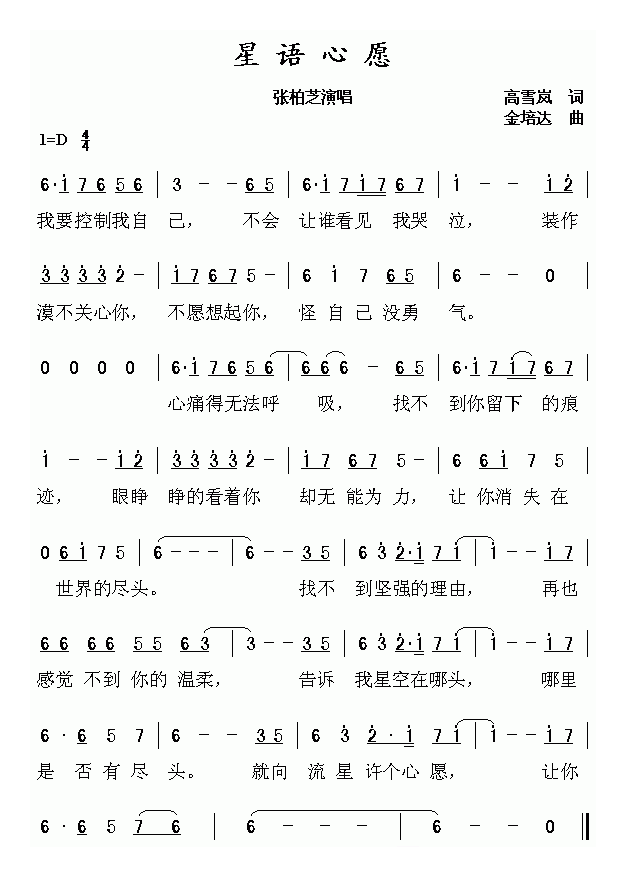 星语心愿
张柏芝演唱 高雪岚 词
金培达 曲
1=D 4/4
6·i 7 6 5 6 | 3 - - 6 5 | 6·i 7 i 7 6 7 | i - - i 2 |
我要控制我自 己， 不会 让谁看见 我哭 泣， 装作
3 3 3 3 2 - | i 7 6 7 5 - | 6 i 7 6 5 | 6 - - 0
漠不关心你， 不愿想起你， 怪 自 己 没勇 气。
0 0 0 0 | 6·i 7 6 5 6 | 6 6 6 - 6 5 | 6·i 7 i 7 6 7
心痛得无法呼 吸， 找不 到你留下 的痕
i - - i 2 | 3 3 3 3 2 | i 7 6 7 5 - | 6 6 i 7 5 |
迹， 眼睁 睁的看着你 却无 能为 力， 让 你消 失 在
0 6 i 7 5 | 6 - - - | 6 - - 3 5 | 6 3 2·i 7 i | i - - i 7 |
世界的尽头。 找不 到坚强的理由， 再也
6 6 6 6 5 5 6 3 | 3 - - 3 5 | 6 3 2·i 7 i | i - - i 7 |
感觉 不到 你的 温柔， 告诉 我星空在哪头， 哪里
6 · 6 5 7 | 6 - - 3 5 | 6 3 2 · i 7 i | i - - i 7 |
是 否 有 尽 头。 就向 流 星 许个心 愿， 让你
6 · 6 5 7 6 | 6 - - - | 6 - - 0 ‖